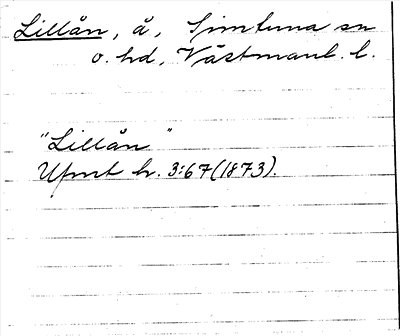 Lillån, å, Simtuna sn
o. hd, Västmanl. l.
"Lillån"
Upmt h. 3:67 (1873).